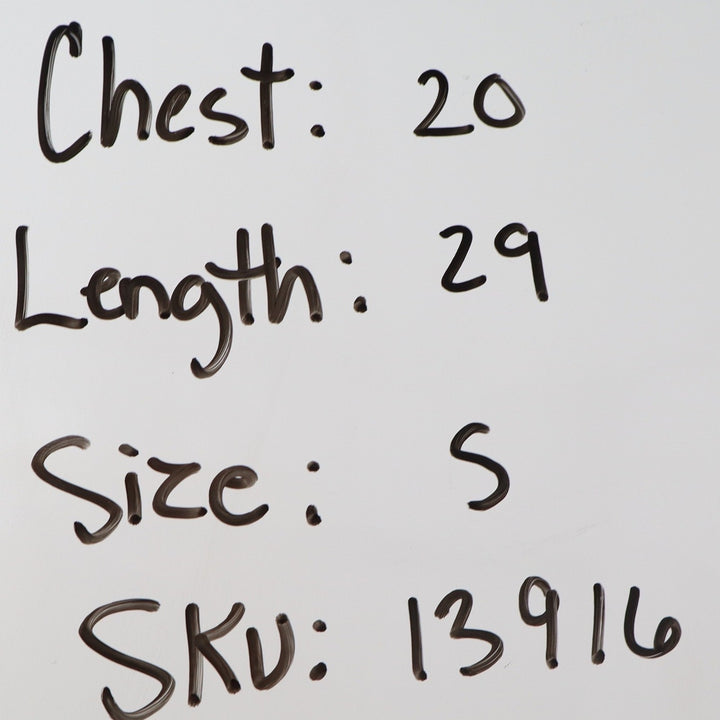 Chest: 20
Length: 29
Size: S
SKU: 13916